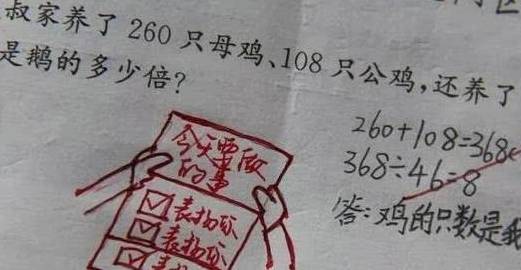 叔家养了 260 只母鸡、108 只公鸡,还养了
是鹅的多少倍?
260+108=368
368÷46=8
答:鸡的只数是
今天要做
的事
☑表扬你
☑表扬你
☑表扬